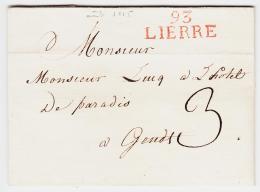 1815
93
LIERRE
à Monsieur
Monsieur Lucq a L'hotel
De paradis
a Gendt
3